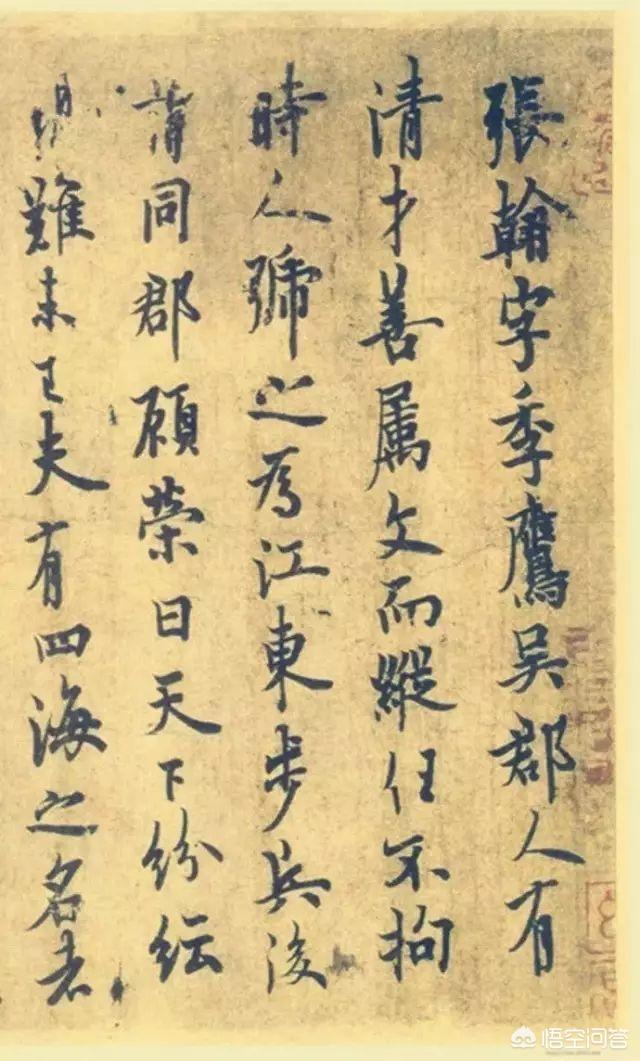 張翰字季鷹吳郡人有
清才善属文而縱任不拘
時人號之為江東步兵後
同郡顧榮曰天下紛紜
難未已夫有四海之名者
悟空问答